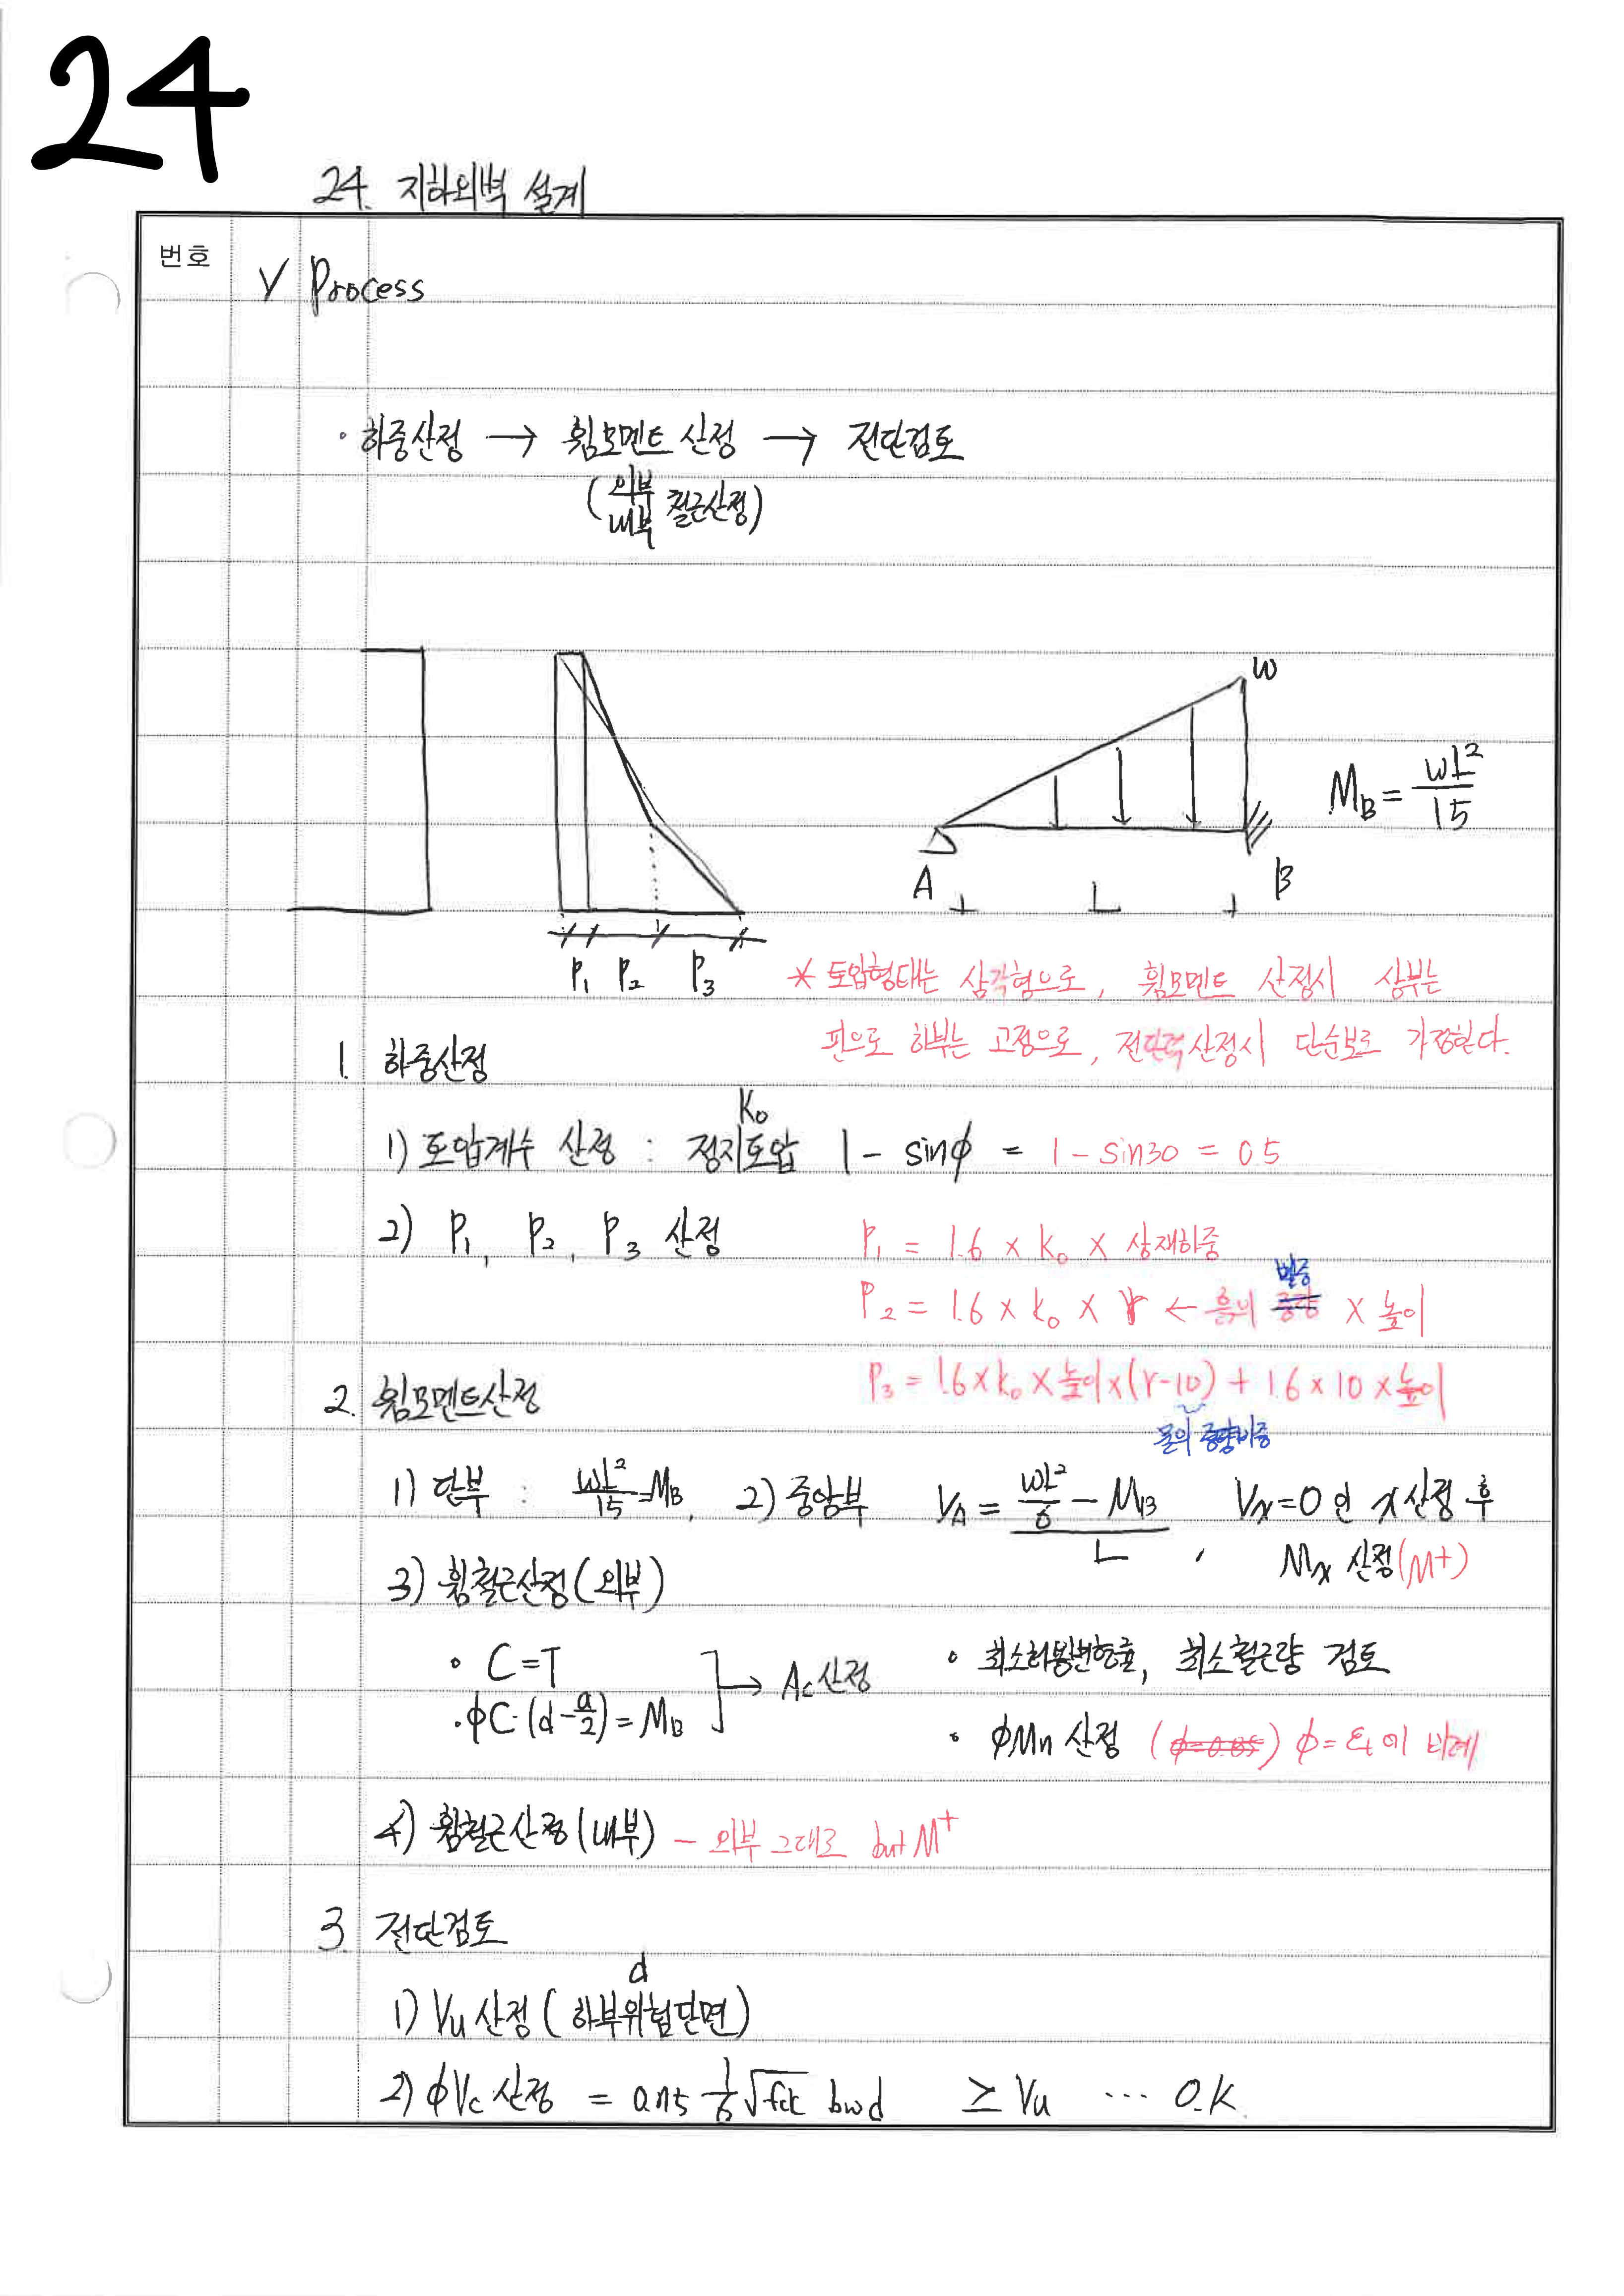 24
24. 지하외벽 설계
번호
V Process
· 하중산정 → 휨모멘트 산정 → 전단검토
(외부 내부 철근산정)
W
M_B = wL²/15
A L B
P₁ P₂ P₃
* 토압형태는 삼각형으로, 휨모멘트 산정시 상부는
핀으로 하부는 고정으로, 전단력 산정시 단순보로 가정한다.
1. 하중산정
K₀
1) 토압계수 산정 : 정지토압 1 - sinφ = 1 - sin30 = 0.5
2) P₁, P₂, P₃ 산정
P₁ = 1.6 × K₀ × 상재하중
P₂ = 1.6 × K₀ × γ ← 흙의 중량 × 높이
P₃ = 1.6 × K₀ × 높이 × (γ-10) + 1.6 × 10 × 높이
물의
2. 휨모멘트산정
1) 단부 : wL²/15 = M_B, 2) 중앙부 V_A = (wL²/6 - M_B)/L , Vx=0 인 x 산정 후
Mx 산정 (M+)
3) 휨철근산정 (외부)
· C=T
· φC·(d - a/2) = M_B ] → Ac 산정
· 최소허용변형률, 최소철근량 검토
· φMn 산정 (φ=0.85) φ = εt 이 비례
4) 휨철근산정 (내부) - 외부 그대로 but M⁺
3. 전단검토
d
1) Vu 산정 (하부위험단면)
2) φVc 산정 = 0.75 1/6 √fck bwd ≥ Vu ··· O.K.